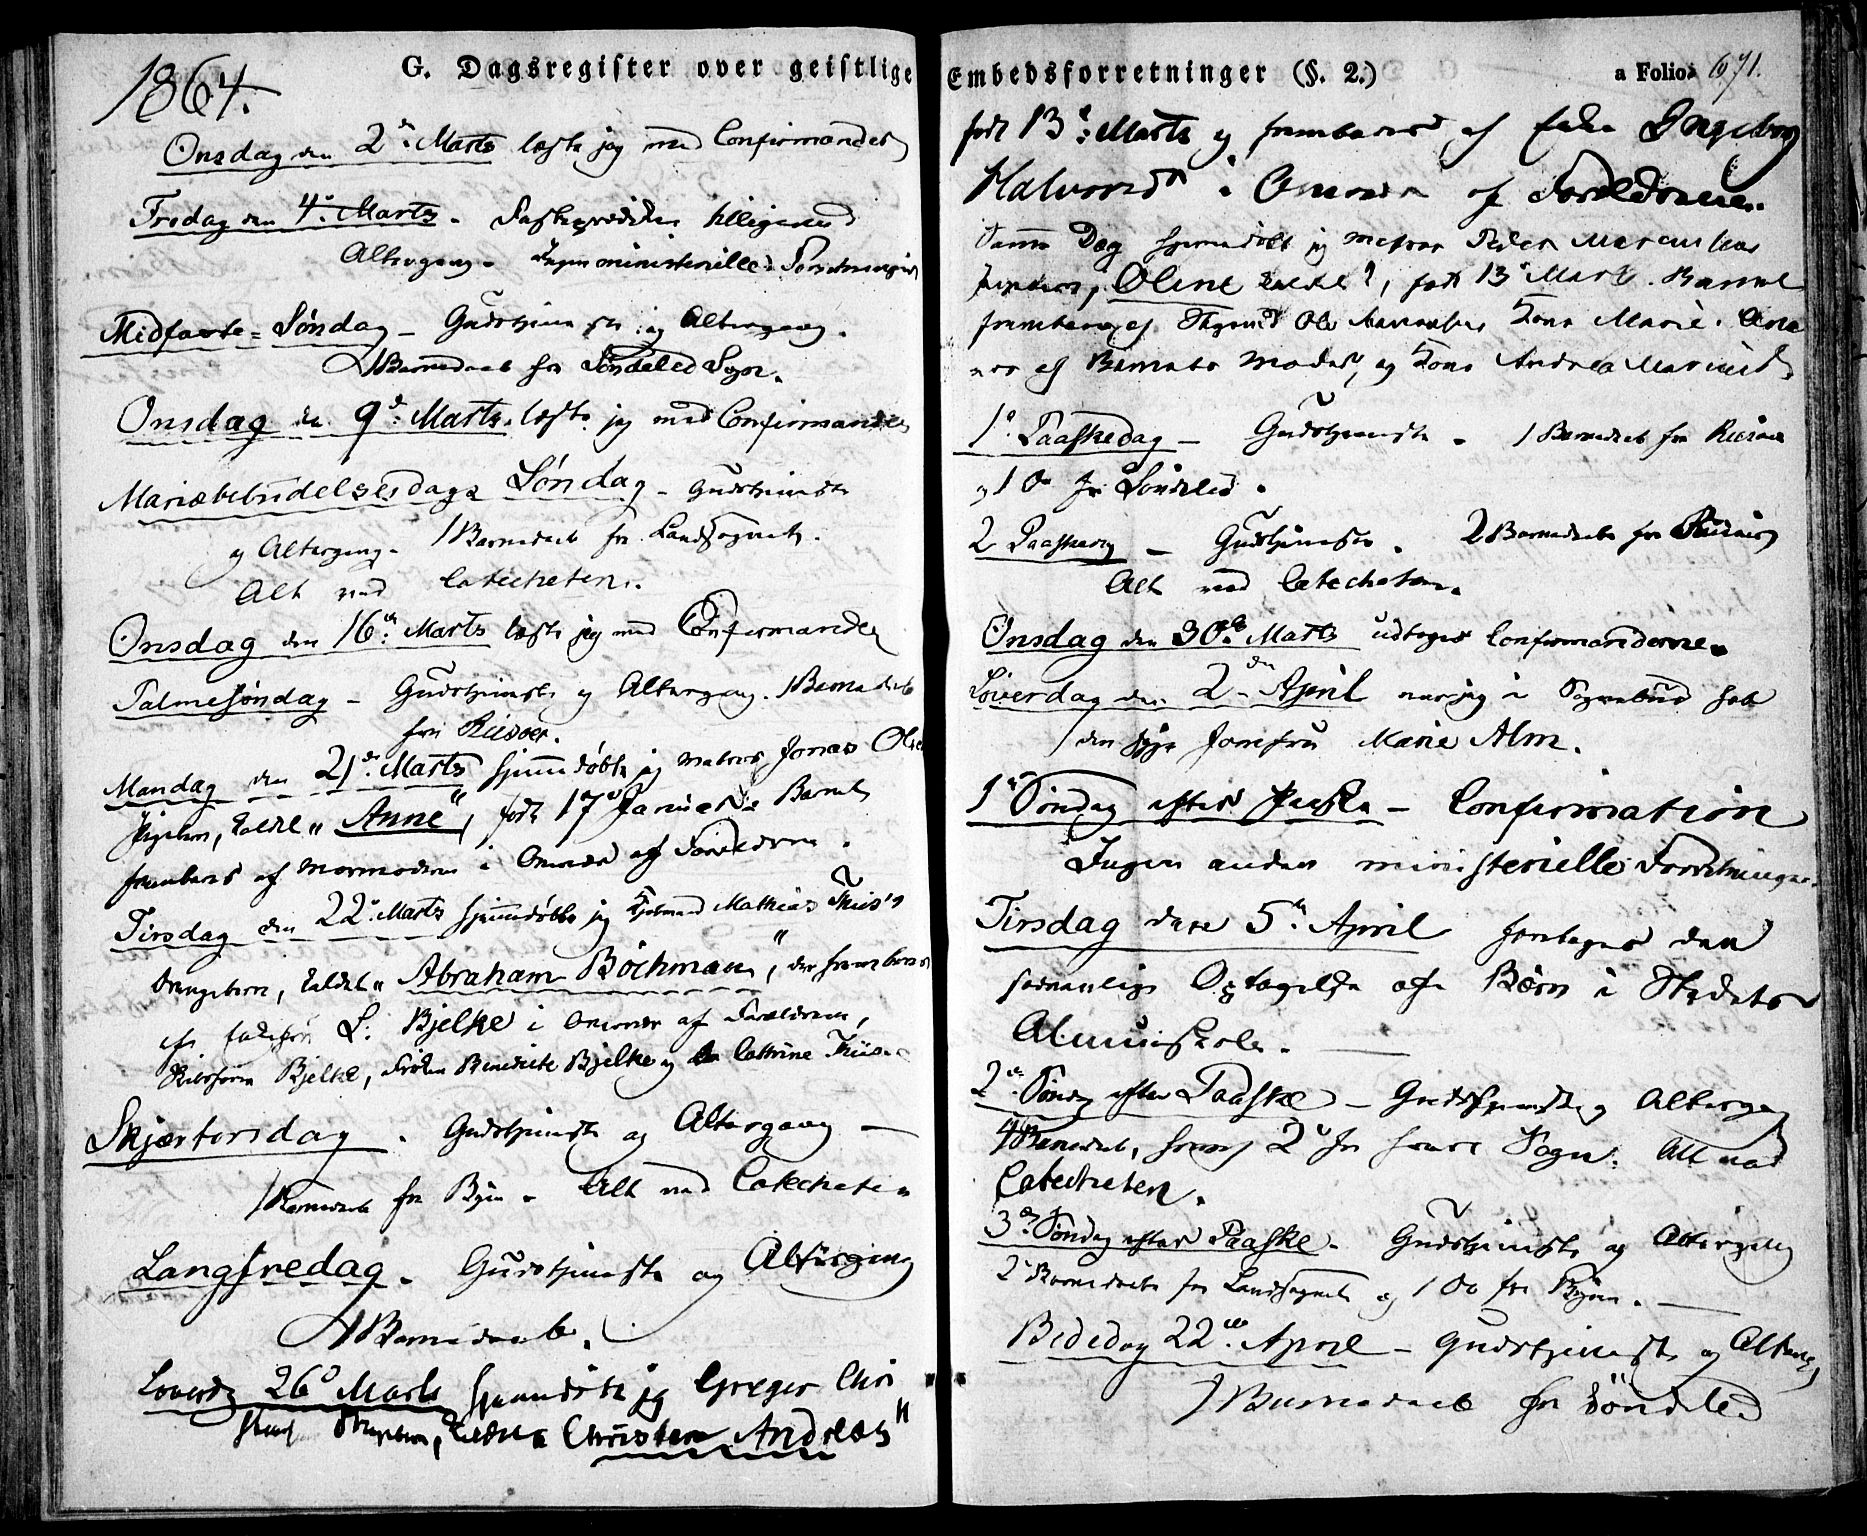 1864.
G. Dagsregister over geistlige
Onsdag den 2den Marts læste jeg med Confirmander
Fredag den 4. Marts - Fasteprædiken tilligemed
Altergang - Ingen ministerielle Forretninger
Midfaste-Søndag - Gudstjeneste og Altergang.
1 Barnedaab fra Søndeled Sogn.
Onsdag den 9de Marts læste jeg med Confirmander
Mariæbebudelsesdags Søndag - Gudstjeneste
og Altergang - 1 Barnedaab fra Landsognet.
Alt ved Catecheten.
Onsdag den 16de Marts læste jeg med Confirmander
Palmesøndag - Gudstjeneste og Altergang. 1 Barnedaab
fra Riisøer.
Mandag den 21de Marts hjemmedøbte jeg Matros Jonas Olsens
Pigebarn, kaldet "Anne", født 17 Januar Barnet
frembaret af Mormoderen i Overvær af Forældrene.
Tirsdag den 22. Marts hjemmedøbte jeg Mathias Thiis's
Drengebarn, kaldet "Abraham Böckman", der frembares
af L. Bjelke i Overvær af Forældrene,
Bjelke, Frøken Benedicte Bjelke og Cathrine Thiis
Skjærtorsdag. Gudstjeneste og Altergang -
1 Barnedaab fra Byen - Alt ved Catecheten
Langfredag - Gudstjeneste og Altergang
1 Barnedaab.
Løverdag 26de Marts hjemmedøbte jeg Greger Chri
Drengebarn, kaldet "Christen Andreas"
Embedsforretninger (§. 2.)
a Folio 671.
født 13de Marts og frembaaret af Ingeborg
Halvorsdr i Overvær af Forældrene.
Samme Dag hjemmedøbt jeg Matros Peder
Oline kaldet, født 13de Marts. Barnet
frembaaret af Ole Kone Marie. Over
vær af Barnets Moder, og Kone Andrea
1ste Paaskedag - Gudstjeneste - 1 Barnedaab fra Riisøer
og 1 Do fra Søndeled.
2 Paaskedag - Gudstjeneste. 2 Barnedaab fra Riisøer
Alt ved Catecheten.
Onsdag den 30te Marts udtoges Confirmanderne.
Løverdag den 2den April var jeg i Sognebud hos
den syge Jomfru Marie Alm.
1ste Søndag efter Paaske - Confirmation
Ingen anden ministerielle Forretninger.
Tirsdag den 5te April foretoges den
sædvanlige Optagelse af Børn i Stedets
Almueskole.
2den Søndag efter Paaske - Gudstjeneste og Altergang
4 Barnedaab, hvoraf 2 fra hvert Sogn. Alt ved
Catecheten.
3die Søndag efter Paaske - Gudstjeneste og Altergang
2 Barnedaab fra Landsognet og 1 Do fra Byen.
Bededag 22de April - Gudstjeneste og Altergang
1 Barnedaab fra Søndeled